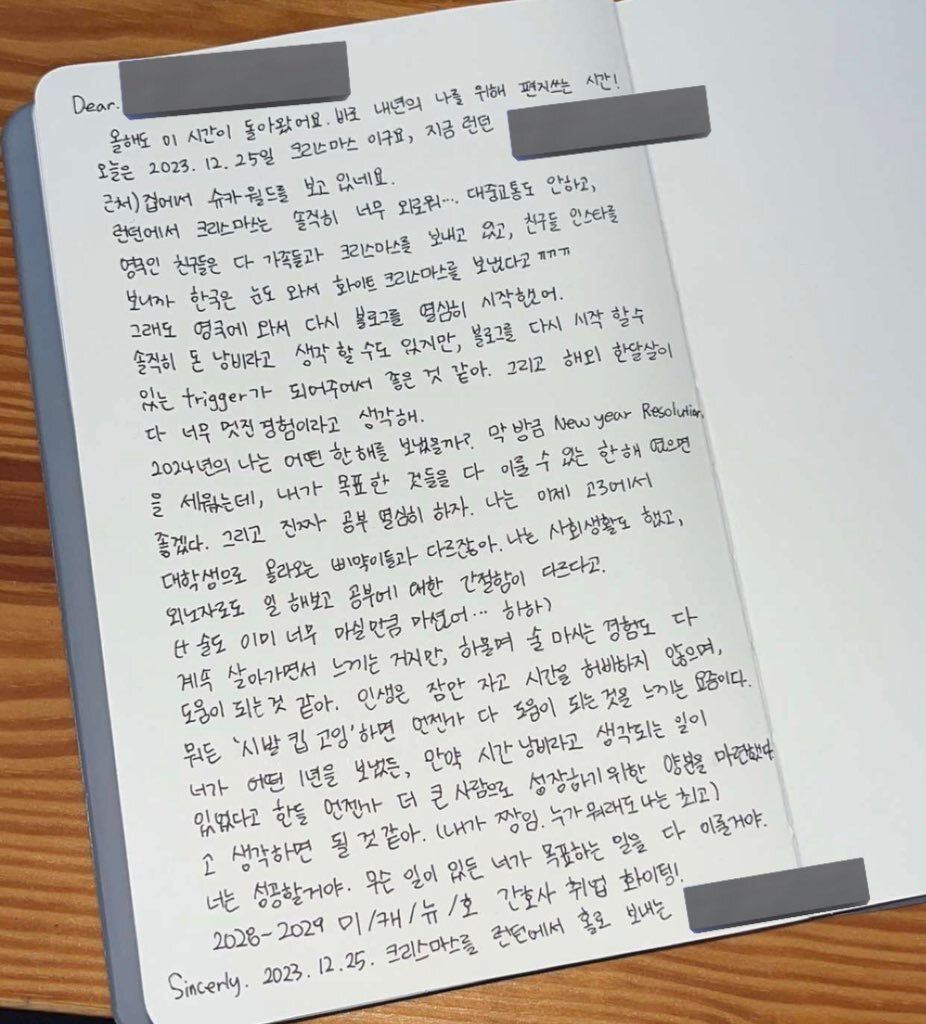 Dear.
올해도 이 시간이 돌아왔어요. 바로 내년의 나를 위해 편지쓰는 시간!
오늘은 2023. 12. 25일 크리스마스 이구요, 지금 런던
근처) 집에서 슈카월드를 보고 있네요.
런던에서 크리스마스는 솔직히 너무 외로워... 대중교통도 안하고,
영국인 친구들은 다 가족들과 크리스마스를 보내고 있고, 친구들 인스타를
보니까 한국은 눈도 와서 화이트 크리스마스를 보냈다고 ㅠㅠㅠ
그래도 영국에 와서 다시 블로그를 열심히 시작했어.
솔직히 돈 낭비라고 생각 할 수도 있지만, 블로그를 다시 시작 할 수
있는 trigger가 되어주어서 좋은 것 같아. 그리고 해외 한달살이
다 너무 멋진 경험이라고 생각해.
2024년의 나는 어떤 한 해를 보냈을까? 막 방금 New year Resolution.
을 세웠는데, 내가 목표한 것들을 다 이룰 수 있는 한 해 였으면
좋겠다. 그리고 진짜 공부 열심히 하자. 나는 이제 고3에서
대학생으로 올라오는 삐약이들과 다르잖아. 나는 사회생활도 했고,
외노자로도 일 해보고 공부에 대한 간절함이 다르다고.
(+ 술도 이미 너무 마실만큼 마셨어... 하하)
계속 살아가면서 느끼는 거지만, 하물며 술 마시는 경험도 다
도움이 되는 것 같아. 인생은 잠만 자고 시간을 허비하지 않으며,
뭐든 '시발 킵 고잉'하면 언젠가 다 도움이 되는 것을 느끼는 요즘이다.
너가 어떤 1년을 보냈든, 만약 시간 낭비라고 생각되는 일이
있었다고 한들 언젠가 더 큰 사람으로 성장하기 위한 양분을 마련했다
고 생각하면 될 것 같아. (내가 짱임. 누가 뭐래도 나는 최고)
너는 성공할거야. 무슨 일이 있든 너가 목표하는 일을 다 이룰거야.
2028~2029 미/캐/뉴/호 간호사 취업 화이팅!
Sincerly. 2023. 12. 25. 크리스마스를 런던에서 홀로 보내는